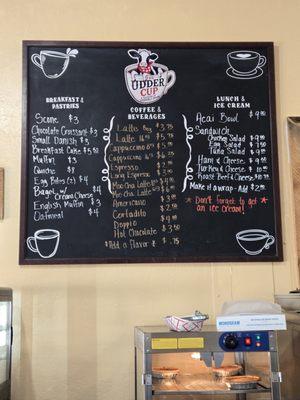 THE
UDDER
CUP
BREAKFAST &
PASTRIES
Scone $3
Chocolate Croissant $3
Small Danish $3
Breakfast Cake $4.50
Muffin $3
Quiche $8
Egg Bites (2) $4
Bagel w/ $4
Cream Cheese
English Muffin $3
Oatmeal $4
COFFEE &
BEVERAGES
Latte 8oz $3.75
Latte 16oz $5.50
Cappuccino 8oz
Cappuccino 16oz
Espresso
Long Espresso
Mocha Latte 8oz
Mocha Latte 16oz
Americano
Cortadito
Doppio
Hot Chocolate $3.50
*Add a Flavor $.75
LUNCH &
ICE CREAM
Acai Bowl $9.00
Sandwich
Chicken Salad $9.00
Egg Salad $9.00
Tuna Salad $9.00
Ham & Cheese $9.00
Turkey & Cheese $10.00
Roast Beef & Cheese $10.75
Make it a wrap - Add $2.00
* Don't forget to get *
an ice cream!